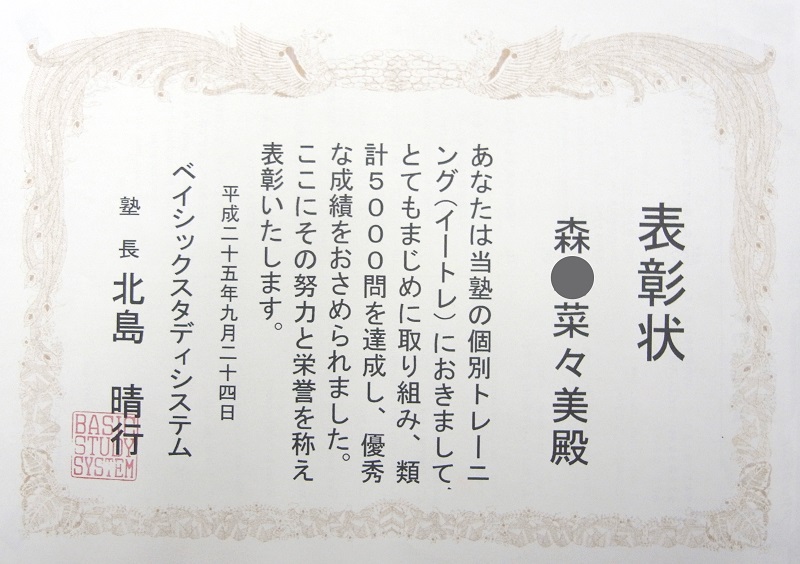 表彰状
森●菜々美殿
あなたは当塾の個別トレーニ
ング(イートレ)におきまして、
とてもまじめに取り組み、類
計5000問を達成し、優秀
な成績をおさめられました。
ここにその努力と栄誉を称え
表彰いたします。
平成二十五年九月二十四日
ベイシックスタディシステム
塾長 北島 晴行
BASIC
STUDY
SYSTEM